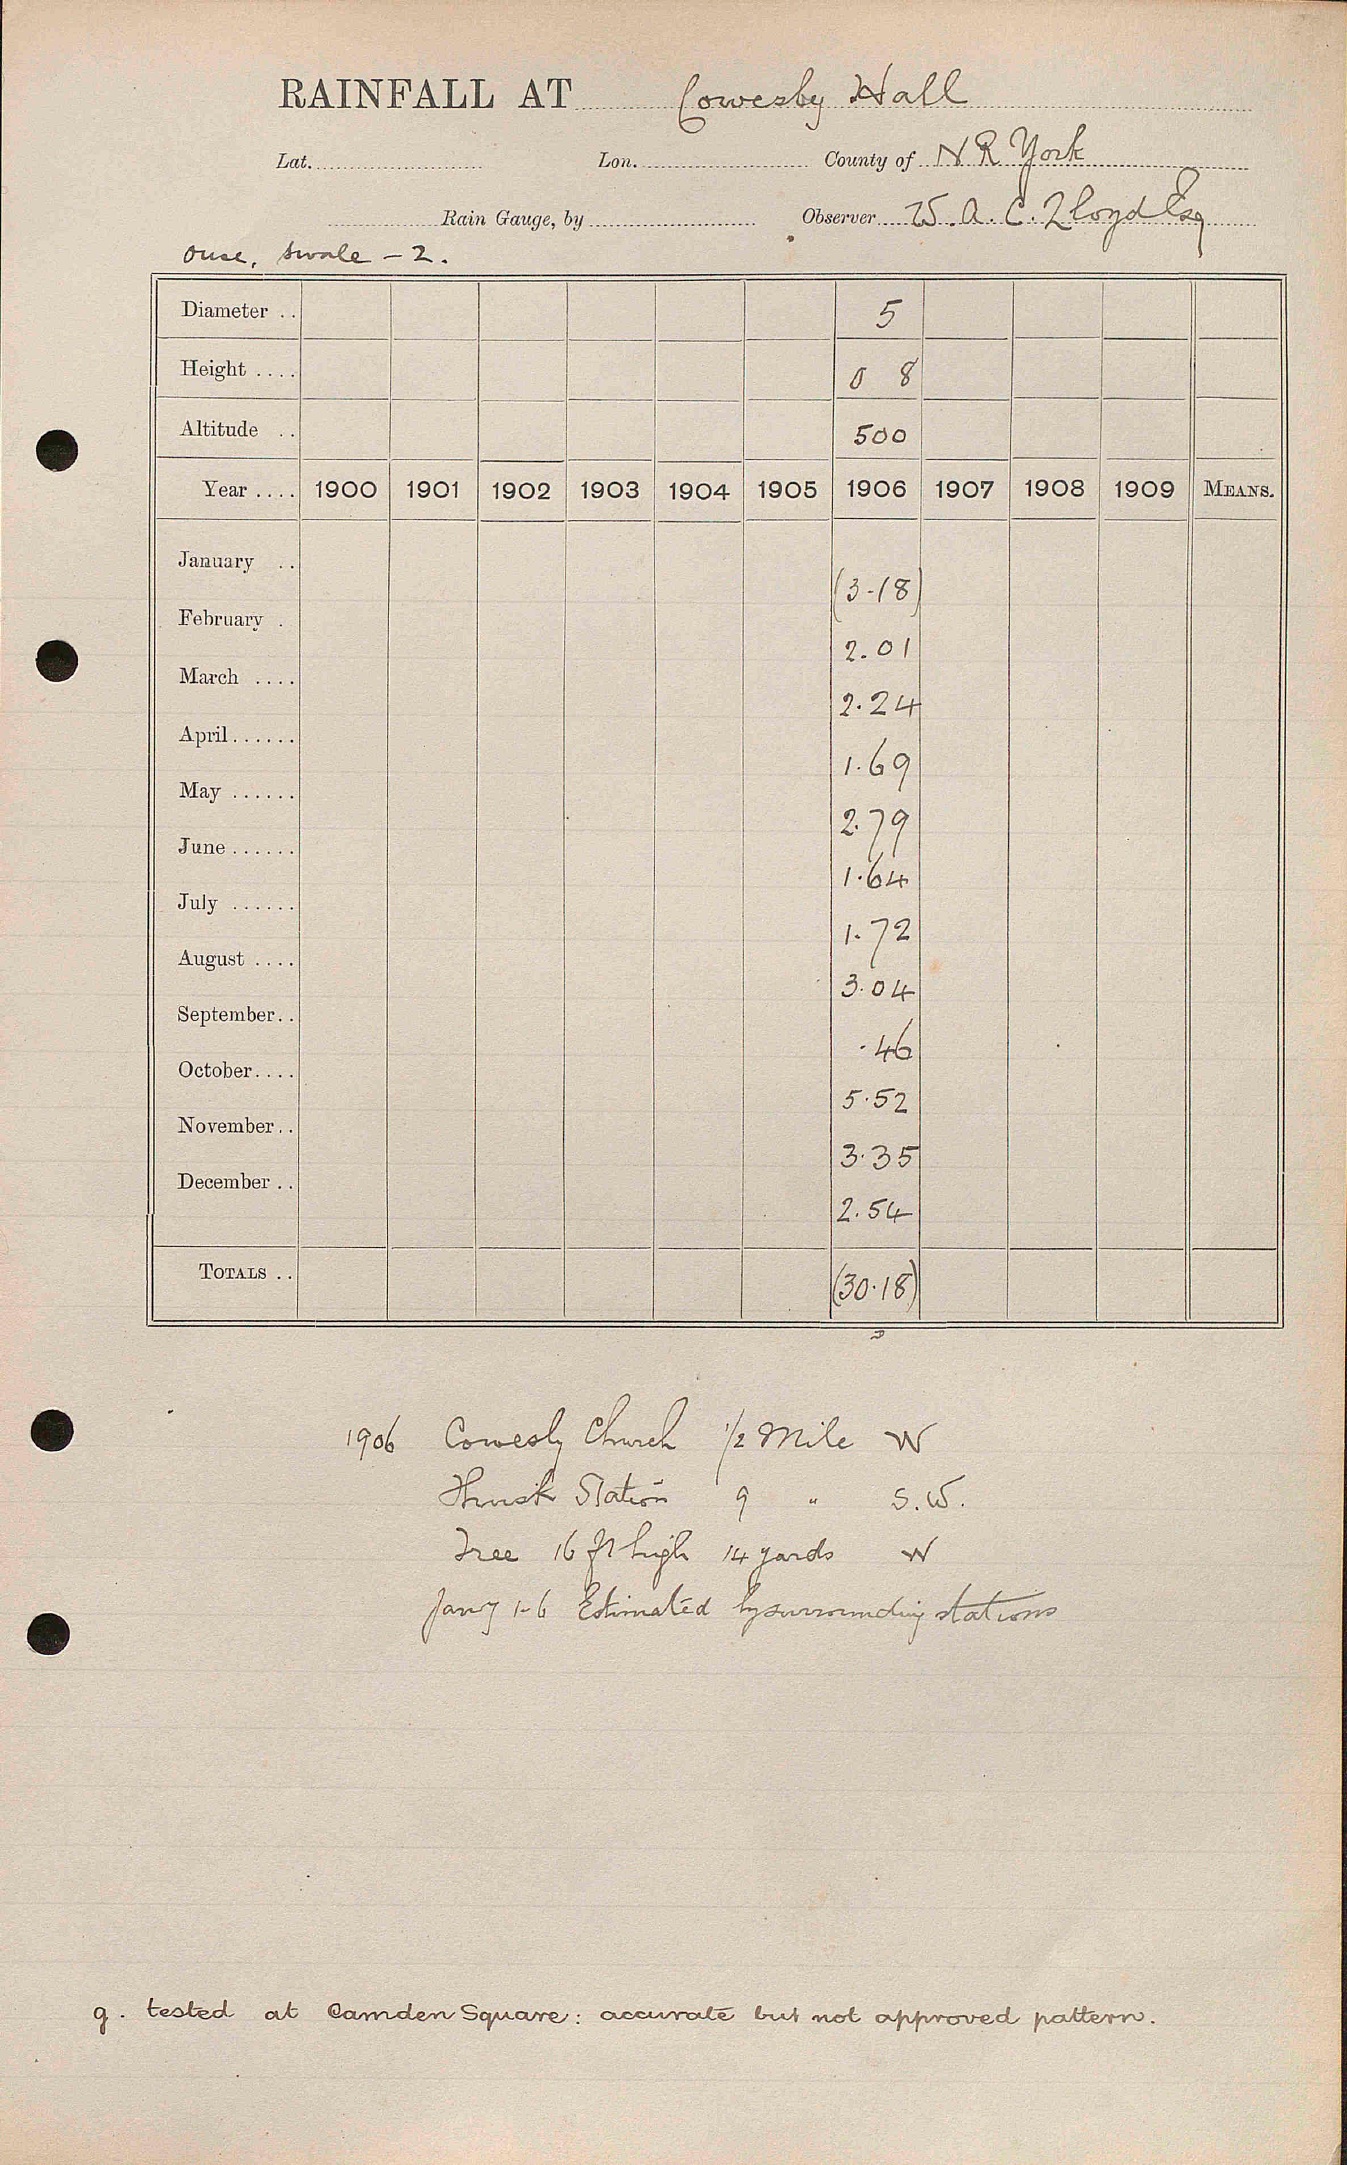 RAINFALL AT Cowesby Hall
Lat. Lon. County of N R York
Rain Gauge, by Observer W. A. C. Lloyd Esq
Ouse, Swale - 2.
Diameter .. 5
Height .... 0 8
Altitude .. 500
Year .... 1900 1901 1902 1903 1904 1905 1906 1907 1908 1909 MEANS.
January .. (3.18)
February . 2.01
March .... 2.24
April ...... 1.69
May ...... 2.79
June ...... 1.64
July ...... 1.72
August .... 3.04
September .. .46
October .... 5.52
November .. 3.35
December .. 2.54
TOTALS .. (30.18)
1906 Cowesby Church 1/2 Mile W
Thirsk Station 9 " S.W.
Tree 16 ft high 14 yards W
Jany 1-6 Estimated by surrounding stations
g. tested at Camden Square: accurate but not approved pattern.